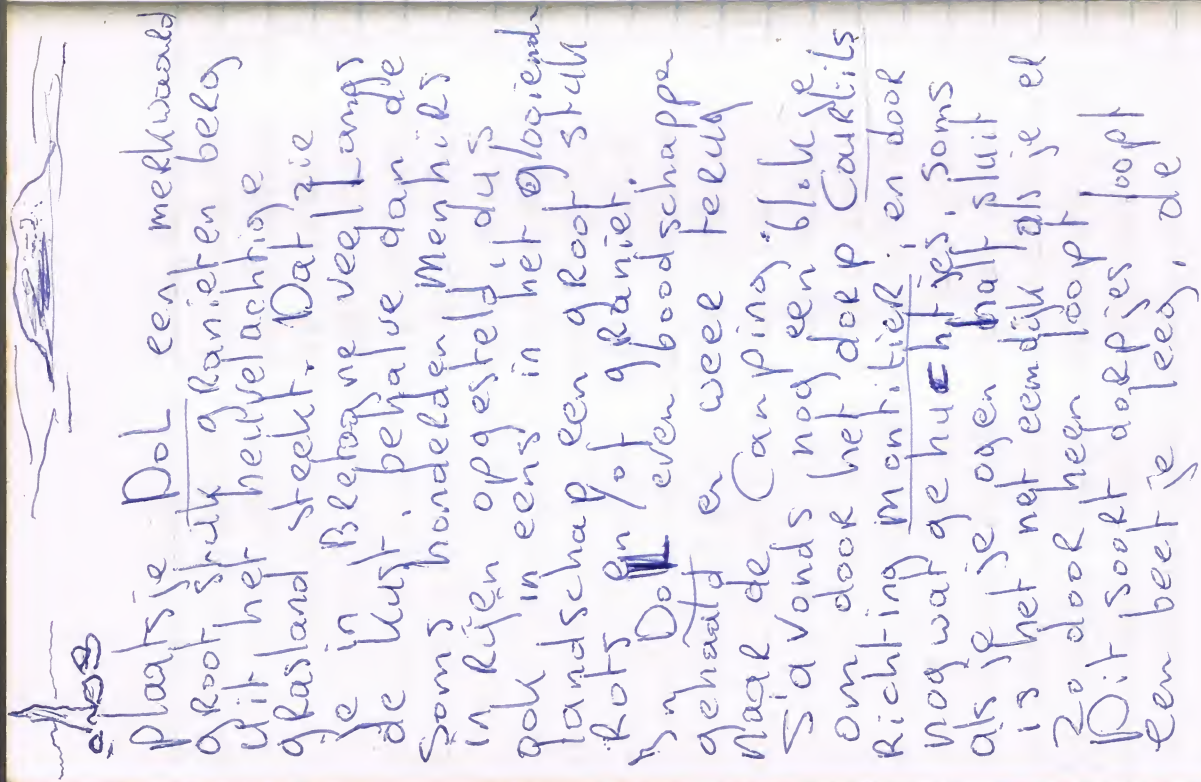 plaatsje Dol een merkwaard
groot stuk graniet en berg
uit het heuvelachtige
grasland steekt. Dat zie
je in Bretagne veel Langs
de kust, behalve dan de
soms honderden Menhirs
in Rijen opgesteld, dus
ook in eens in het glooiend
landschap een groot stuk
Rots en/of graniet.
In Dol even boodschappen
gehaald en weer terug
naar de Camping.
S'avonds nog een blokje
om door het dorp Courtils
Richting Montitier, en door
nog wat gehuchtjes, soms
als je je ogen half sluit
is het net eem dijk als je er
zo door heen loopt
Dit soort dorpjes loopt
een beetje leeg, de